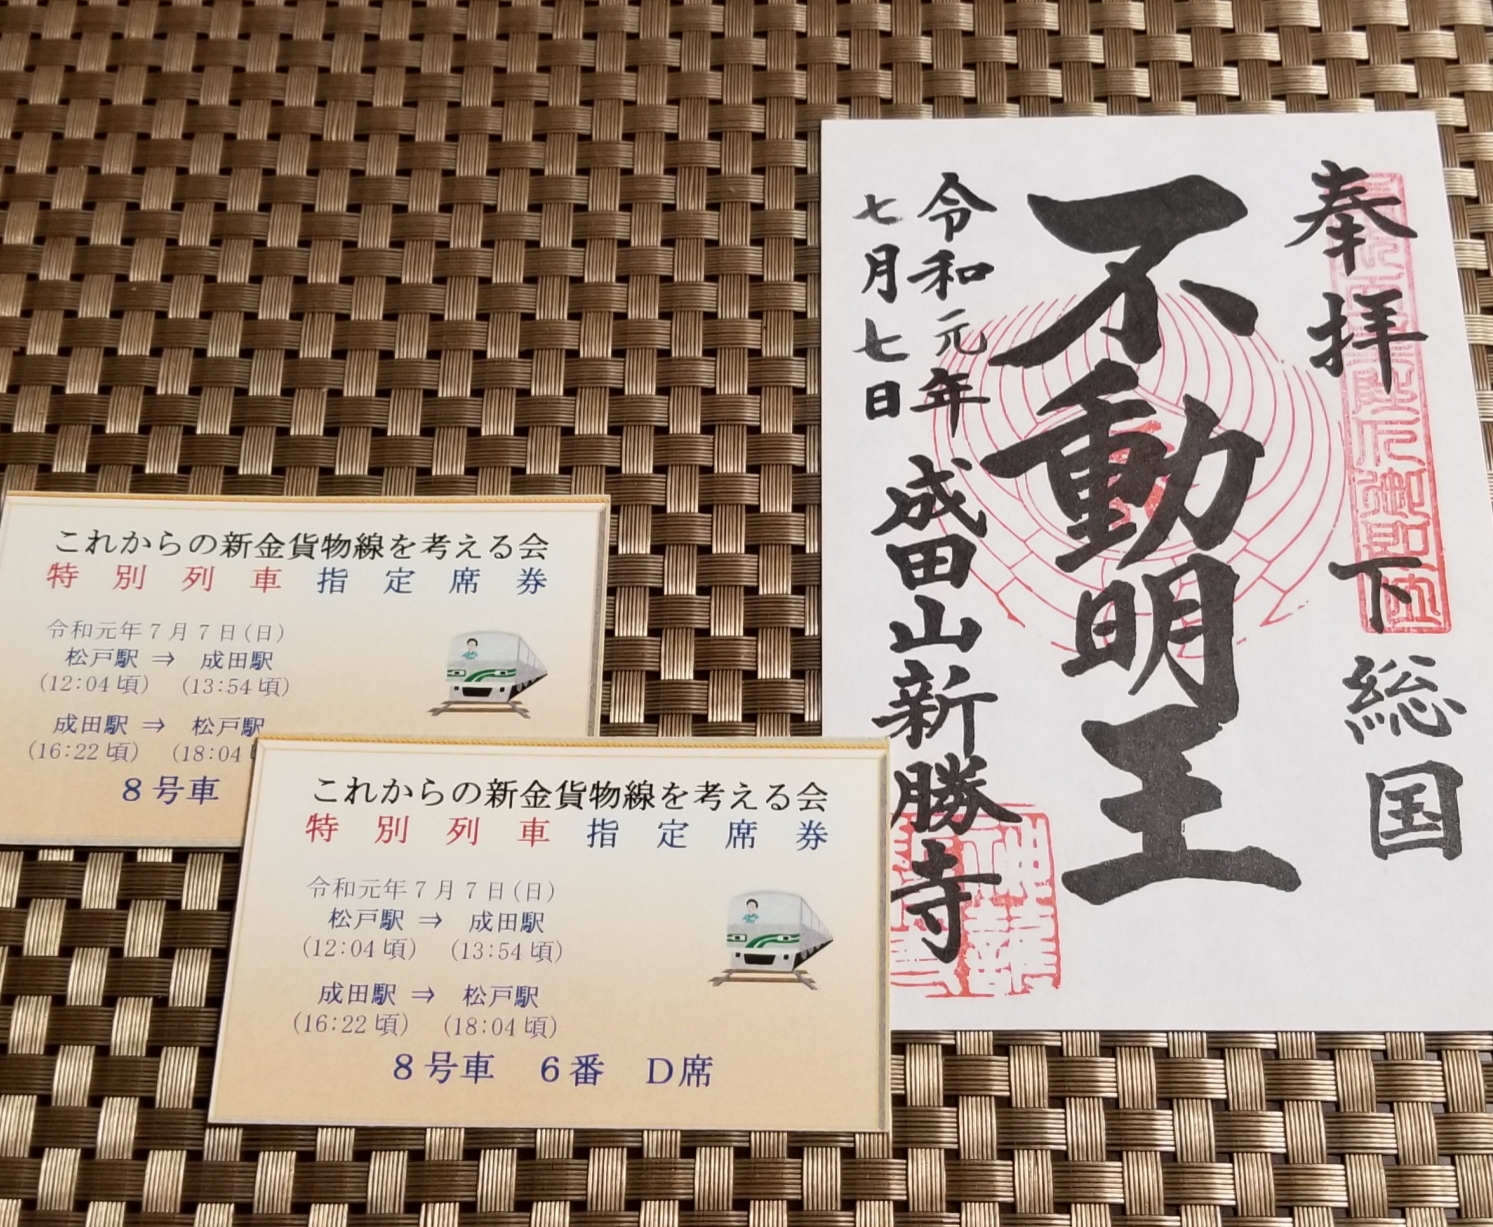 これからの新金貨物線を考える会
特別列車指定席券
令和元年7月7日(日)
松戸駅 ⇒ 成田駅
(12:04頃) (13:54頃)
成田駅 ⇒ 松戸駅
(16:22頃) (18:04
8号車
これからの新金貨物線を考える会
特別列車指定席券
令和元年7月7日(日)
松戸駅 ⇒ 成田駅
(12:04頃) (13:54頃)
成田駅 ⇒ 松戸駅
(16:22頃) (18:04頃)
8号車 6番 D席
奉拝 下総国
不動明王
令和元年
七月七日
成田山新勝寺